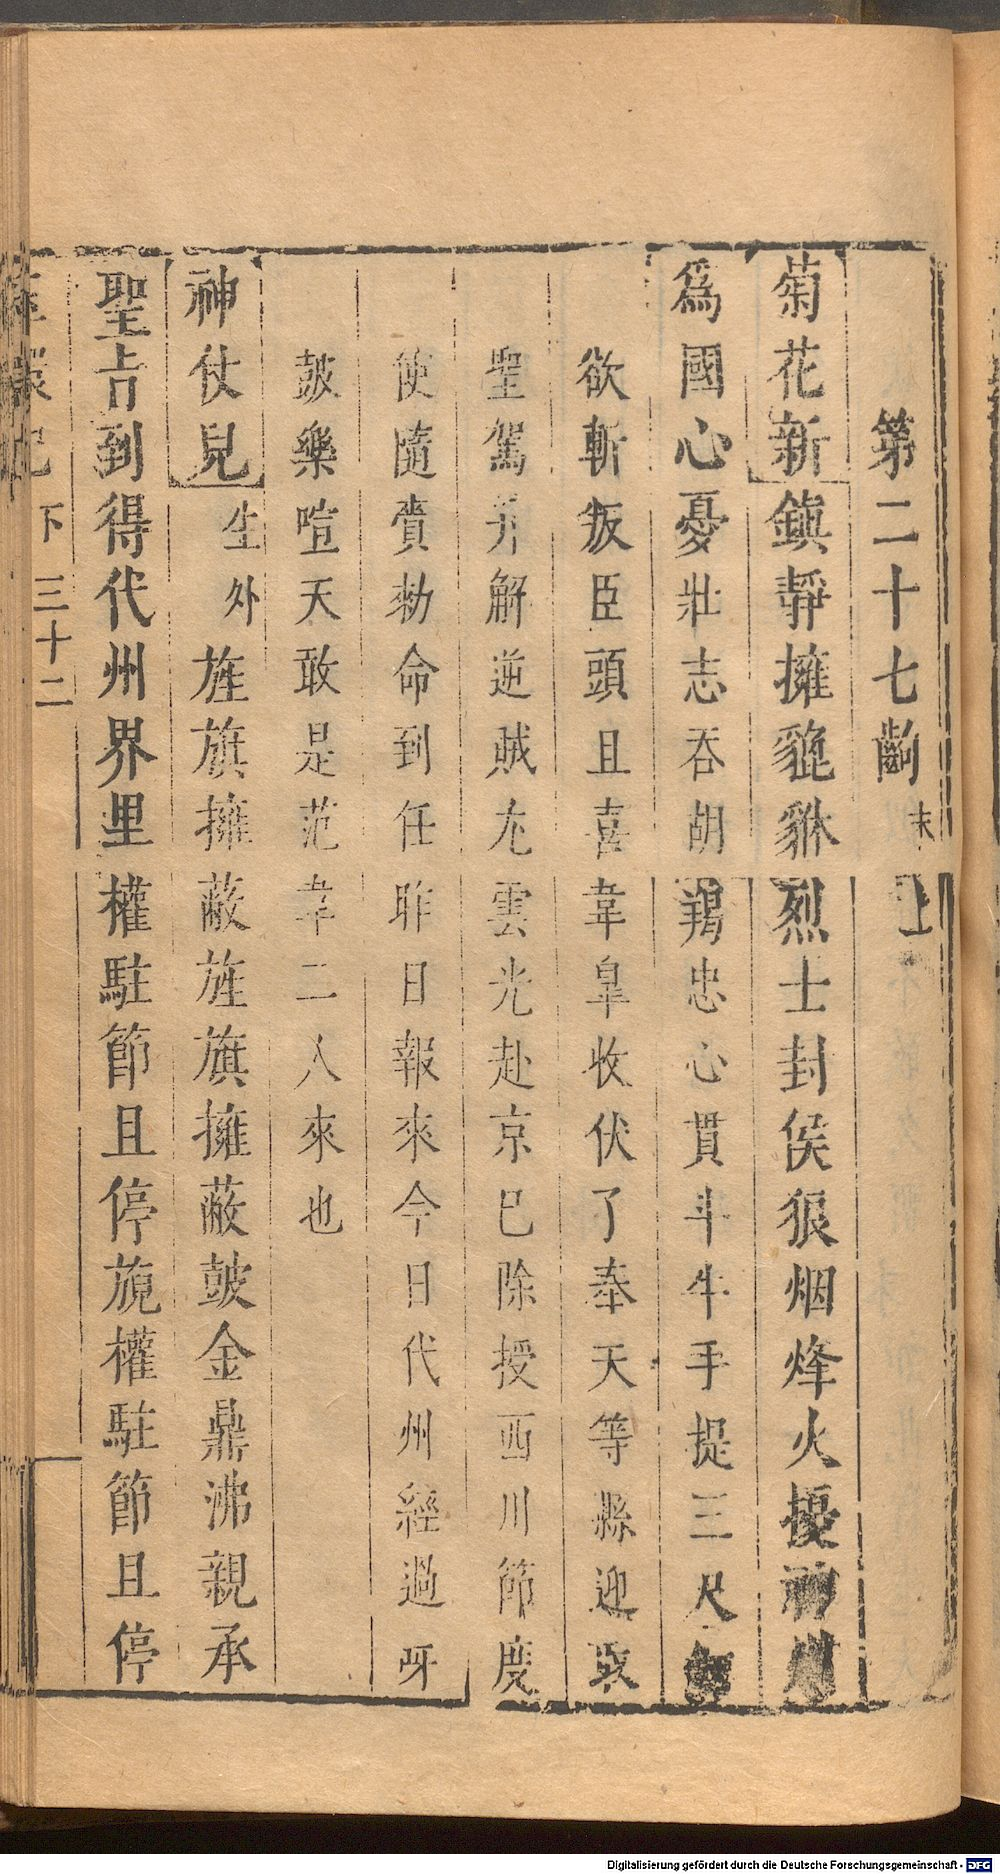 第二十七齣 末上
菊花新 鎮靜擁貔貅烈士封侯狼烟烽火擾
爲國心憂壯志吞胡羯忠心貫斗牛手提三尺
欲斬叛臣頭且喜韋臯收伏了奉天等縣迎
聖駕并解逆賊尤雲光赴京已除授西川節度
使隨賫勑命到任昨日報來今日代州經過
皷樂喧天敢是范韋二人來也
神仗兒 生外 旌旗擁蔽旌旗擁蔽皷金鼎沸親承
聖旨到得代州界里權駐節且停旎權駐節且停
環記 下 三十二
Digitalisierung gefördert durch die Deutsche Forschungsgemeinschaft - DFG